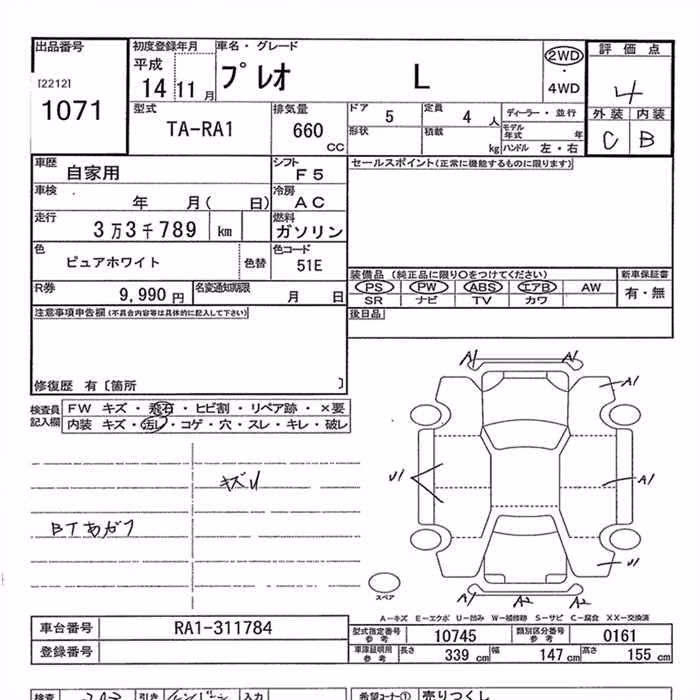 出品番号 初度登録年月 車名・グレード 評価点
平成 14 11月 プレオ L 2WD・4WD 4
[2212]
1071
型式 TA-RA1 排気量 660CC ドア 5 定員 4人 ディーラー・並行 外装 内装
形状 積載 kg モデル年式 年 ハンドル 左・右 C B
車歴 自家用 シフト F5 セールスポイント(正常に機能するものに限ります)
車検 年 月(日) 冷房 AC
走行 3万3千789 km 燃料 ガソリン
色 ピュアホワイト 色替 色コード 51E
装備品(純正品に限り○をつけてください) 新車保証書
PS PW ABS エアB AW 有・無
SR ナビ TV カワ
R券 9,990円 名変通知期限 月 日
注意事項申告欄(不具合内容等は具体的に記入して下さい) 後日品
修復歴 有〔箇所 〕
検査員記入欄 FW キズ・飛石・ヒビ割・リペア跡・×要
内装 キズ・汚れ・コゲ・穴・スレ・キレ・破レ
A1 A1
A1
キズU
U1 A1
BTあがり
U1
スペア
A1 A2 A2
A-キズ E-エクボ U-凹み W-補修跡 S-サビ C-腐食 XX-交換済
車台番号 RA1-311784
型式指定番号参考 10745 類別区分番号参考 0161
登録番号
車庫証明用参考 長さ 339cm 幅 147cm 高さ 155cm
検査 引き 入力 希望コーナー① 売りつくし